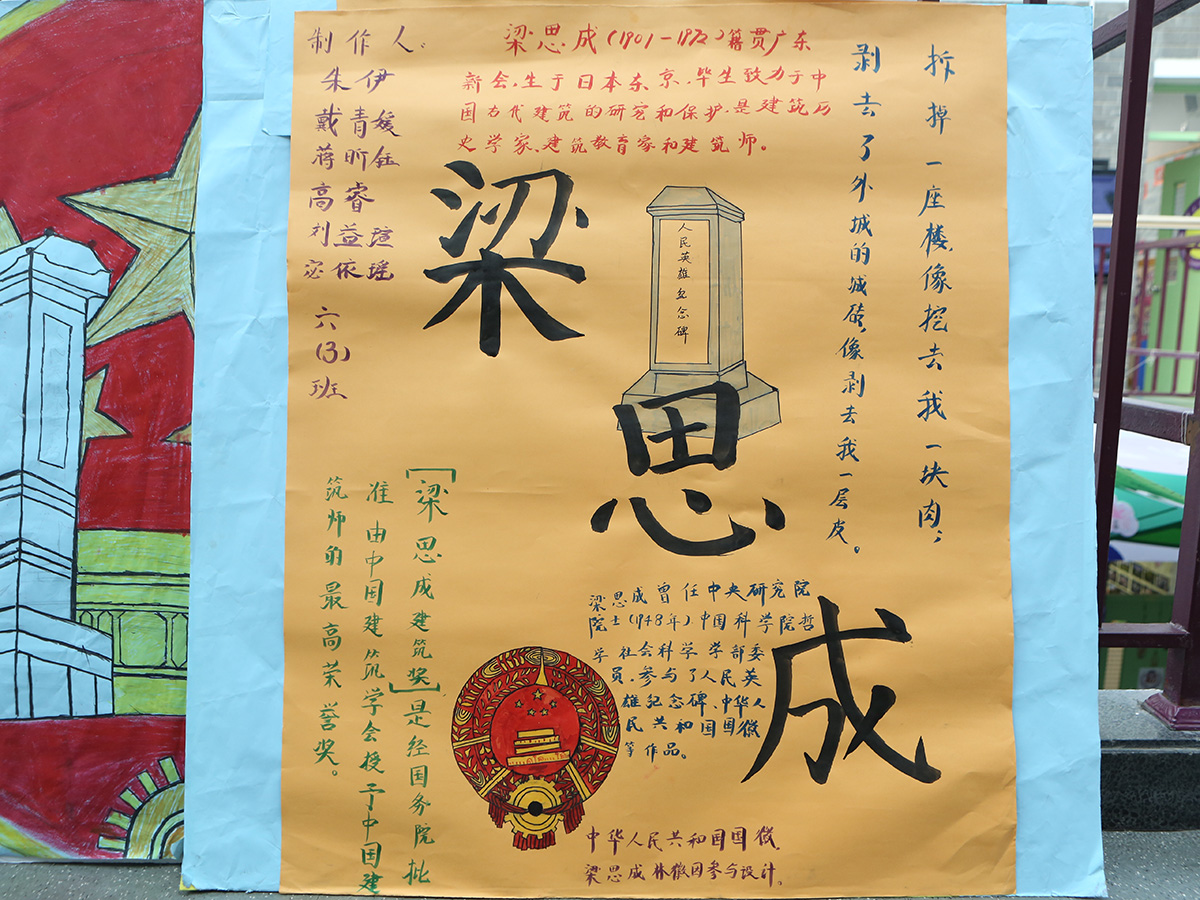 制作人:
朱伊
戴青媛
蒋昕钰
高睿
刘益瑄
宓依瑶
六(3)班
梁思成(1901-1972)籍贯广东
新会,生于日本东京.毕生致力于中
国古代建筑的研究和保护.是建筑历
史学家、建筑教育家和建筑师。
拆掉一座楼,像挖去我一块肉;
剥去了外城的城砖,像剥去我一层皮。
梁思成
人民英雄纪念碑
[梁思成建筑奖]是经国务院批
准由中国建筑学会授予中国建
筑师的最高荣誉奖。
梁思成曾任中央研究院
院士(1948年)中国科学院哲
学社会科学学部委
员.参与了人民英
雄纪念碑、中华人
民共和国国徽
等作品。
中华人民共和国国徽.
梁思成林徽因参与设计.